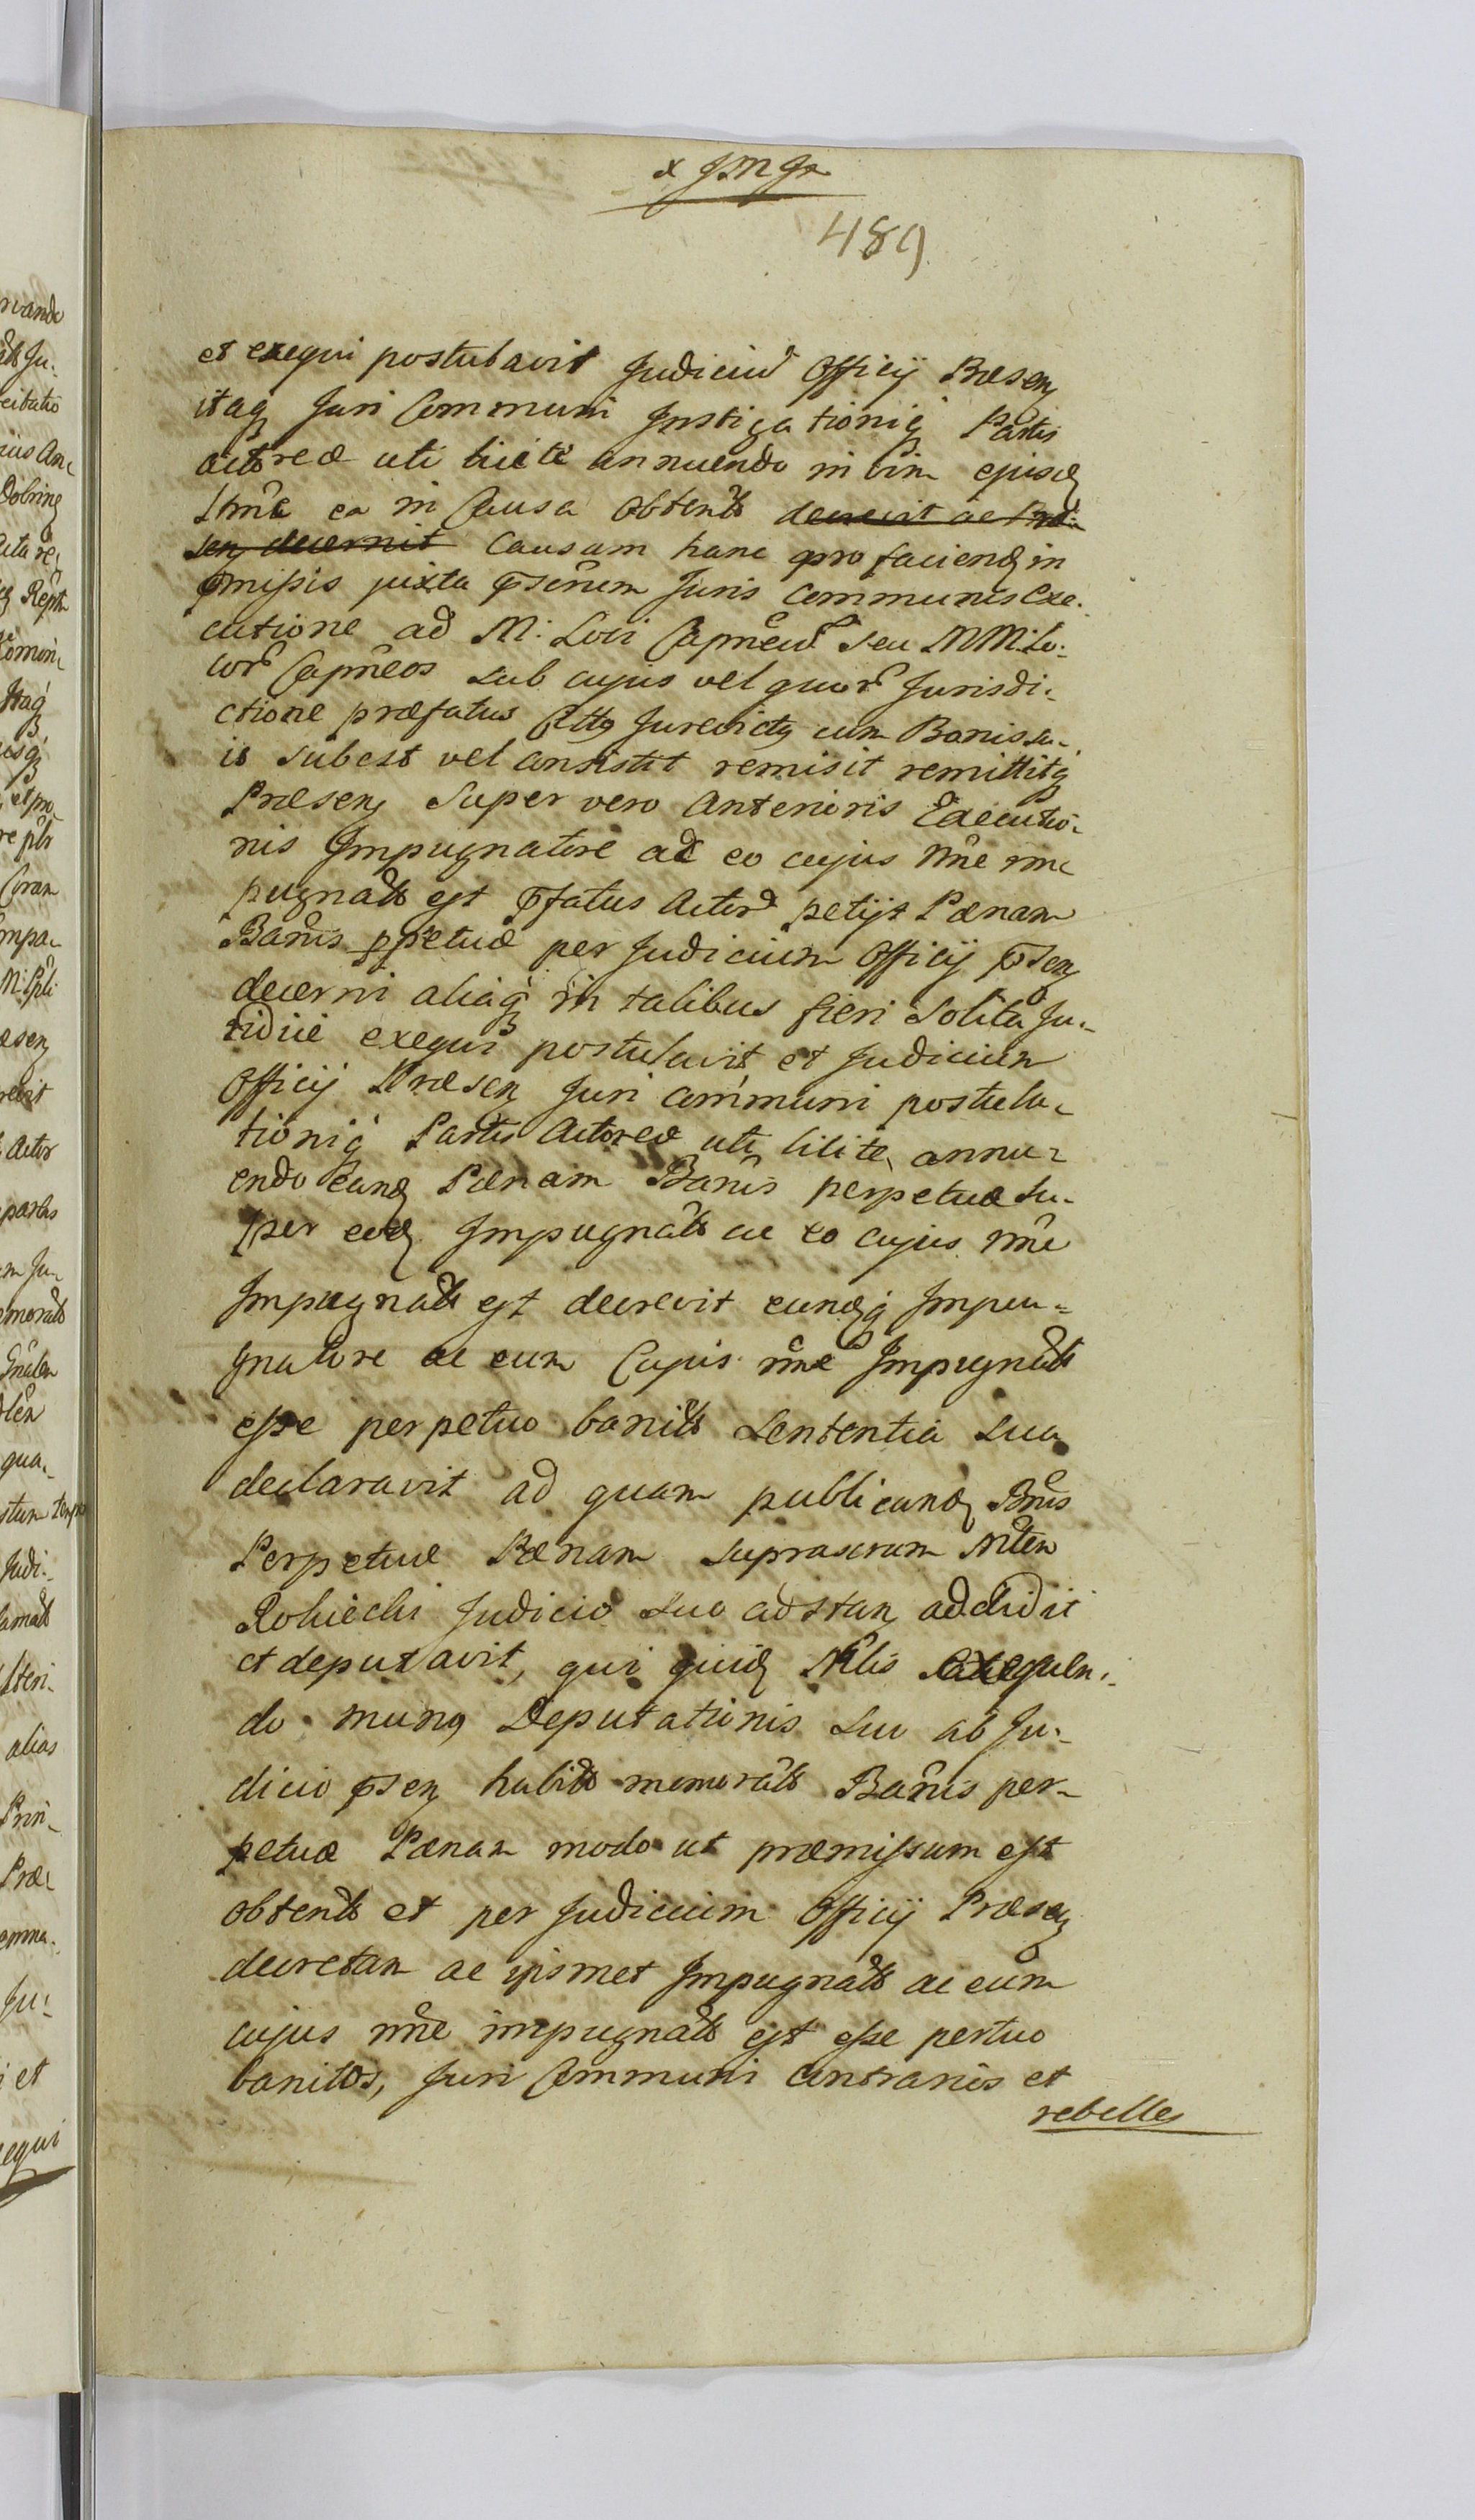 489
et exequi postulavit Judiciũ Officij Præsen
itaq Juri Communi Instigationiq Partis
actoreæ uti licite annuendo in vim ejusd
ea in Causa obtent decrevit ac Præ-
sen decernit Causam hanc pro faciend in
pmissis juxta psenem Juris Communis Exe-
cutione ad M: Loci Capneũ seu MM: Lo-
cor Capneos sub cujus vel quor Jurisdi-
ctione præfatus Cittg Jurevictg cum Bonis su-
is subest vel consistit remisit remittitq
Præsen Super vero Anterioris Executio-
nis Impugnatore ac eo cujus nne im-
pugnatt est pfatus Actor petijt Pænam
Banis ppetuæ per Judicium Officij psen
decerni aliaq in talibus fieri solita Ju-
ridice exequi postulavit et Judicium
Officij Præsen Juri communi postula-
tioniq Partis Actoreæ uti licite annu-
endo eand Pænam Banis perpetuæ su-
per eod Impugnatt ac eo cujus nne
Impugnatt est decrevit eundq Impu-
gnatore ac eum Cujus nne Impugnatt
esse perpetuo banitt Sententia sua
declaravit ad quam publicand Bnis
Perpetuæ Pænam suprascrum Mten
Rohiecki Judicio suo adstan addidit
et deputavit, qui quid Mtlis exequen-
do mung Deputationis suæ ab Ju-
dicio psen habitt memoratt Banis per-
petuæ Pænam modo ut præmissum est
obtentt et per Judicium Officij Præsen
decretam ac ipsmet Impugnatt ac eum
cujus nne impugnatt est esse pertuo
banitos, Juri Communi contrarios et
rebelles